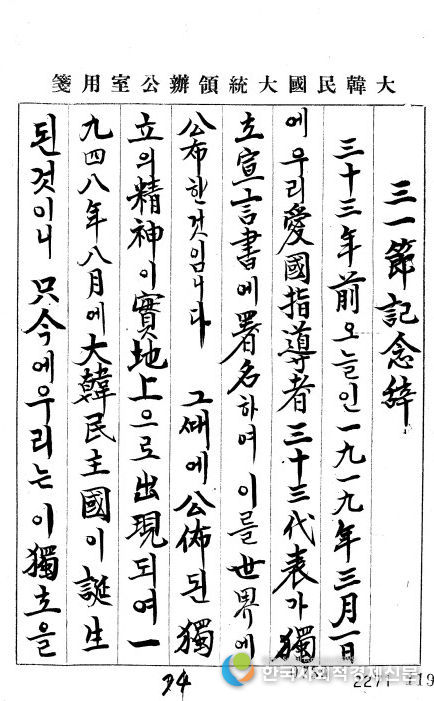 大韓民國大統領辦公室用箋
三一節記念辭
三十三年前오늘인一九一九年三月一日
에우리愛國指導者三十三代表가獨
立宣言書에署名하여이를世界에
公布한것입니다 그때에公佈된獨
立의精神이實地上으로出現되여一
九四八年八月에大韓民主國이誕生
된것이니 只今에우리는이獨立을
한국사회적경제신문
2271 119